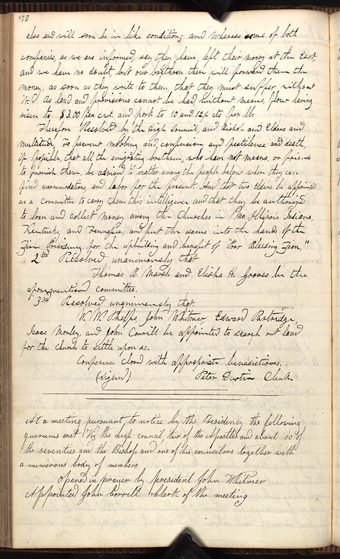 70
also and will soon be in like condition; and whereas some of both
companies, as we are informed, say they have left their money at the East,
and we have no doubt, but our brethren there will forward them the
money, as soon as they write to them, that they must suffer, without
it & as land and provisions cannot be had without means, flour having
risen to $3.00 per cwt and pork to 10 and 12½ cts per lb
Therefore Resolved by the High Council, and Bishop and Elders and
multitude, to prevent mobbing and confusion and pestilence and death,
if possible, that all the emigrating brethren, who have not means, or friends
to furnish them, be advised to scatter among the people before where they can
find accommodations and labor for the present. And that two elders be appointed
as a committee to carry them this intelligence and that they be authorized
to loan and collect money among the Churches in Mo. Illinois Indiana,
Kentucky and Tennessee, and put the same into the hands of the
Zion Presidency for the upholding and benefit of "Poor Bleeding Zion."
2nd Resolved unanimously that
Thomas B. Marsh and Elisha H. Groves be the
aforementioned committee.
3rd Resolved unanimously that
W. W. Phelps, John Whitmer, Edward Partridge,
Isaac Morley, and John Corrill be appointed to search out land
for the church to settle upon &c.
Conference closed with appropriate benedictions.
(signed) Peter Dustin Clerk
At a meeting pursuant to notice by the Presidency the following
quorums met: viz the high council, two of the apostles and about 10 of
the seventies and the Bishop and one of his councilors together with
a numerous body of members
opened in prayer by President John Whitmer
Appointed John Corrill Clerk of the meeting